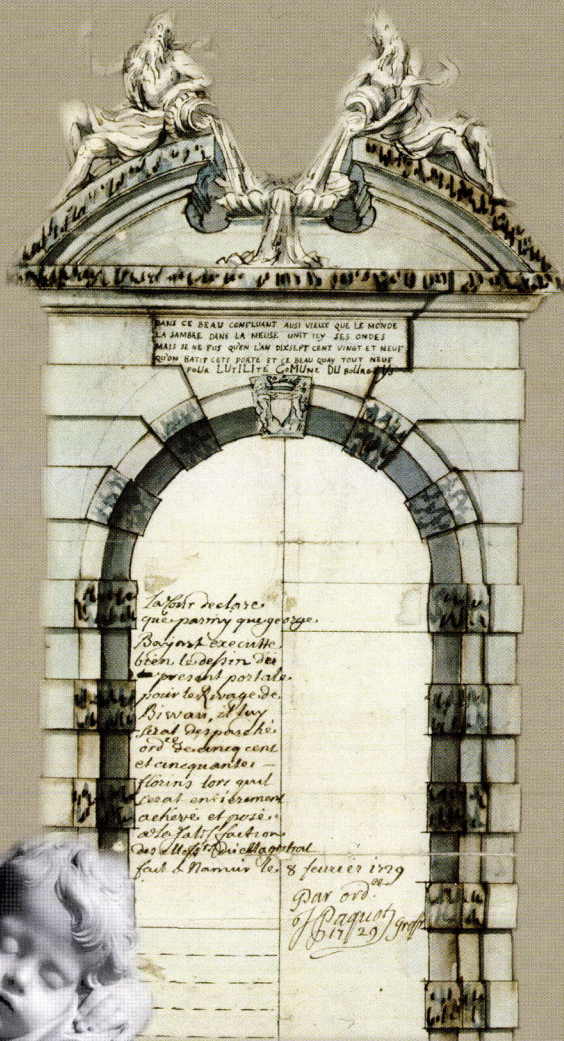 DANS CE BEAU CONFLUANT AUSI VIEUX QUE LE MONDE
LA SAMBRE DANS LA MEUSE UNIT ICY SES ONDES
MAIS JE NE FUS QU'EN L'AN DIXSEPT CENT VINGT ET NEUF
QU'ON BATIT CETE PORTE ET CE BEAU QUAY TOUT NEUF
POUR LUTILITÉ COMUNE DU
La Cour declare
que parmy que george
Bayart executte
bien le dessin du
present portale
pour le Rivage de
Biwan, il luy
serat desparché
ord.ce de cincq cent
et cincquante
florins lors quil
serat entierement
achevé et posé
a la satisfaction
des Mess.rs du Magistrat
fait a Namur le 8 fevrier 1729
Par ord.ce
J Paquot
1729 Greff